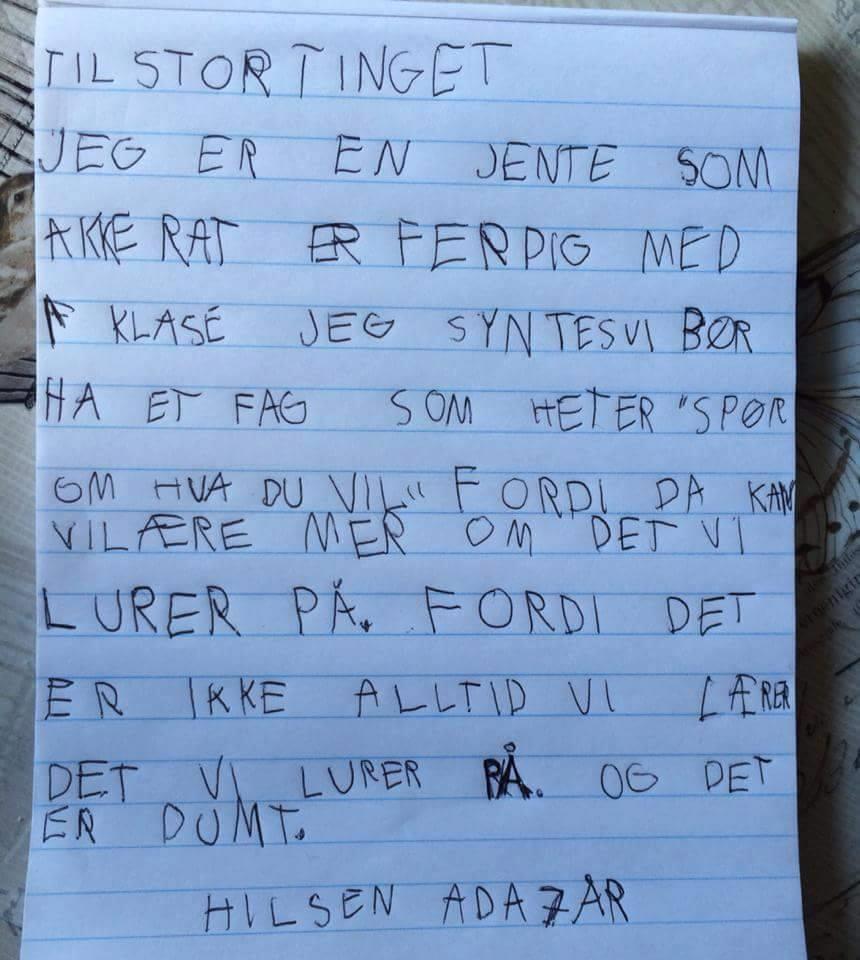 TIL STORTINGET
JEG ER EN JENTE SOM
AKKERAT ER FERDIG MED
1 KLASE JEG SYNTES VI BØR
HA ET FAG SOM HETER "SPØR
OM HVA DU VIL" FORDI DA KAN
VI LÆRE MER OM DET VI
LURER PÅ. FORDI DET
ER IKKE ALLTID VI LÆRER
DET VI LURER PÅ. OG DET
ER DUMT.
HILSEN ADA 7 ÅR